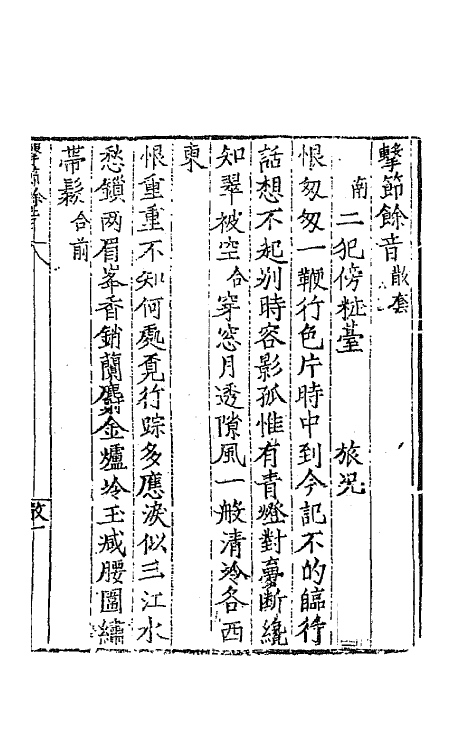 擊節餘音散套
南 二犯傍粧臺 旅况
恨匆匆一鞭行色片時中到今記不的臨行
話想不起別時容影孤惟有青燈對夢斷纔
知翠被空合穿窓月透隙風一般清冷各西
東
恨重重不知何處覓行踪多應淚似三江水
愁鎖两眉峯香銷蘭麝金爐冷玉减腰圍繡
帶鬆合前